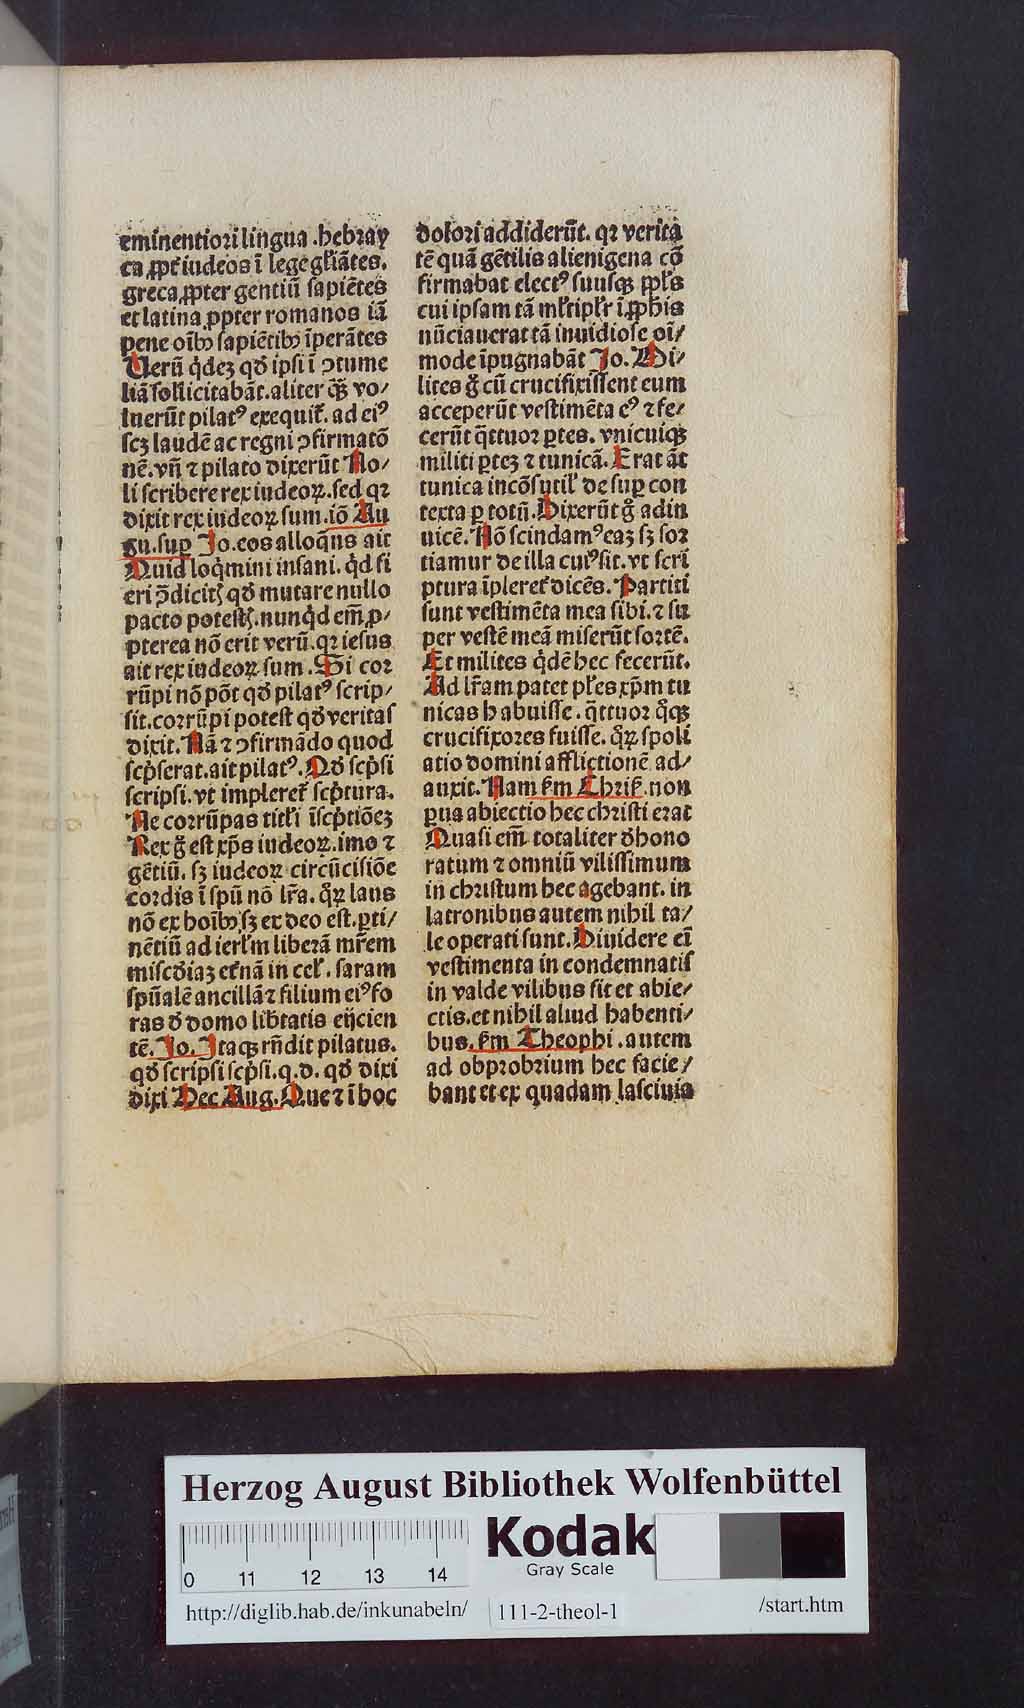 eminentiori lingua .hebray
ca ꝓpt̄ iudeos ī lege gl̄iātes.
greca ꝓpter gentiū sapiētes
et latina ꝓpter romanos iā
pene oīb⁹ sapiētib⁹ īperātes
Uerū q̇deꝫ qd̄ ipsi ī ꝯtume
liā sollicitabāt. aliter qꝫ̄ vo/
luerūt pilatꝰ exequit̄. ad eiꝰ
scꝫ laudē ac regni ꝯfirmatō
nē. vn̄ ⁊ pilato dixerūt No/
li scribere rex iudeoꝝ. sed qꝛ
dixit rex iudeoꝝ sum. iō Au
gu. sup̄ Jo. eos alloq̄ns ait
Quid loq̇mini insani. q̇d fi
eri ꝯ̄dicitꝭ qd̄ mutare nullo
pacto potestꝭ. nunq̇d em̄ ꝓ/
pterea nō erit verū. qꝛ iesus
ait rex iudeoꝝ sum. Si cor
rūpi nō pōt qd̄ pilatꝰ scrip/
sit. corrūpi potest qd̄ veritas
dixit. Nā ⁊ ꝯfirmādo quod
scp̄serat. ait pilatꝰ. Qd̄ scp̄si
scripsi. vt impleret̄ scp̄tura.
Ne corrūpas titl̄i īscp̄tiōeꝫ
Rex g̊ est xp̄s iudeoꝝ. imo ⁊
gētiū. sꝫ iudeoꝝ circūcisiōe
cordis ī spū nō lr̄a. qͦꝝ laus
nō ex hoīb⁹ sꝫ ex deo est. ꝑti/
nētiū ad ierl̄m liberā mr̄em
misc̄diaꝫ et̄nā in cel̄. saram
spūalē ancillā ⁊ filium eiꝰ fo
ras d̄ domo lib̄tatis eijcien
tē. Jo. Itaqꝫ rn̄dit pilatus.
qd̄ scripsi scp̄si. q. d. qd̄ dixi
dixi Hec Aug. Que ⁊ ī hoc
dolori addiderūt. qꝛ verita
tē quā gētilis alienigena cō
firmabat electꝰ suusqꝫ ppl̄s
cui ipsam tā ml̄tipl̄r ī ꝓphis
nūciauerat tā inuidiose oī/
mode īpugnabāt Jo. Mi/
lites g̊ cū crucifixissent eum
acceperūt vestimēta eꝰ ⁊ fe/
cerūt q̄ttuor ꝑtes. vnicuiqꝫ
militi ꝑteꝫ ⁊ tunicā. Erat āt
tunica incōsutil̄ desuꝑ con
texta ꝑ totū. Dixerūt g̊ adin
uicē. Nō scindamꝰ eaꝫ sꝫ sor
tiamur de illa cuiꝰ sit. vt scri
ptura īpleret̄ dicēs. Partiti
sunt vestimēta mea sibi. ⁊ su
per vestē meā miserūt sortē.
Et milites q̇dē hec fecerūt.
Ad lr̄am patet pl̄es xp̄m tu
nicas habuisse. q̄ttuor q̊qꝫ
crucifixores fuisse. qͦꝝ spoli
atio domini afflictionē ad/
auxit. Nam km̄ Chrik̄. non
ꝑua abiectio hec christi erat
Quasi em̄ totaliter d̄hono
ratum ⁊ omniū vilissimum
in christum hec agebant. in
latronibus autem nihil ta/
le operati sunt. Diuidere eī
vestimenta in condemnatis
in valde vilibus fit et abie/
ctis. et nihil aliud habenti/
bus. km̄ Theophi. autem
ad obprobrium hec facie/
bant et ex quadam lasciuia
Herzog August Bibliothek Wolfenbüttel
0 11 12 13 14
Kodak
Gray Scale
http://diglib.hab.de/inkunabeln/
111-2-theol-1
/start.htm